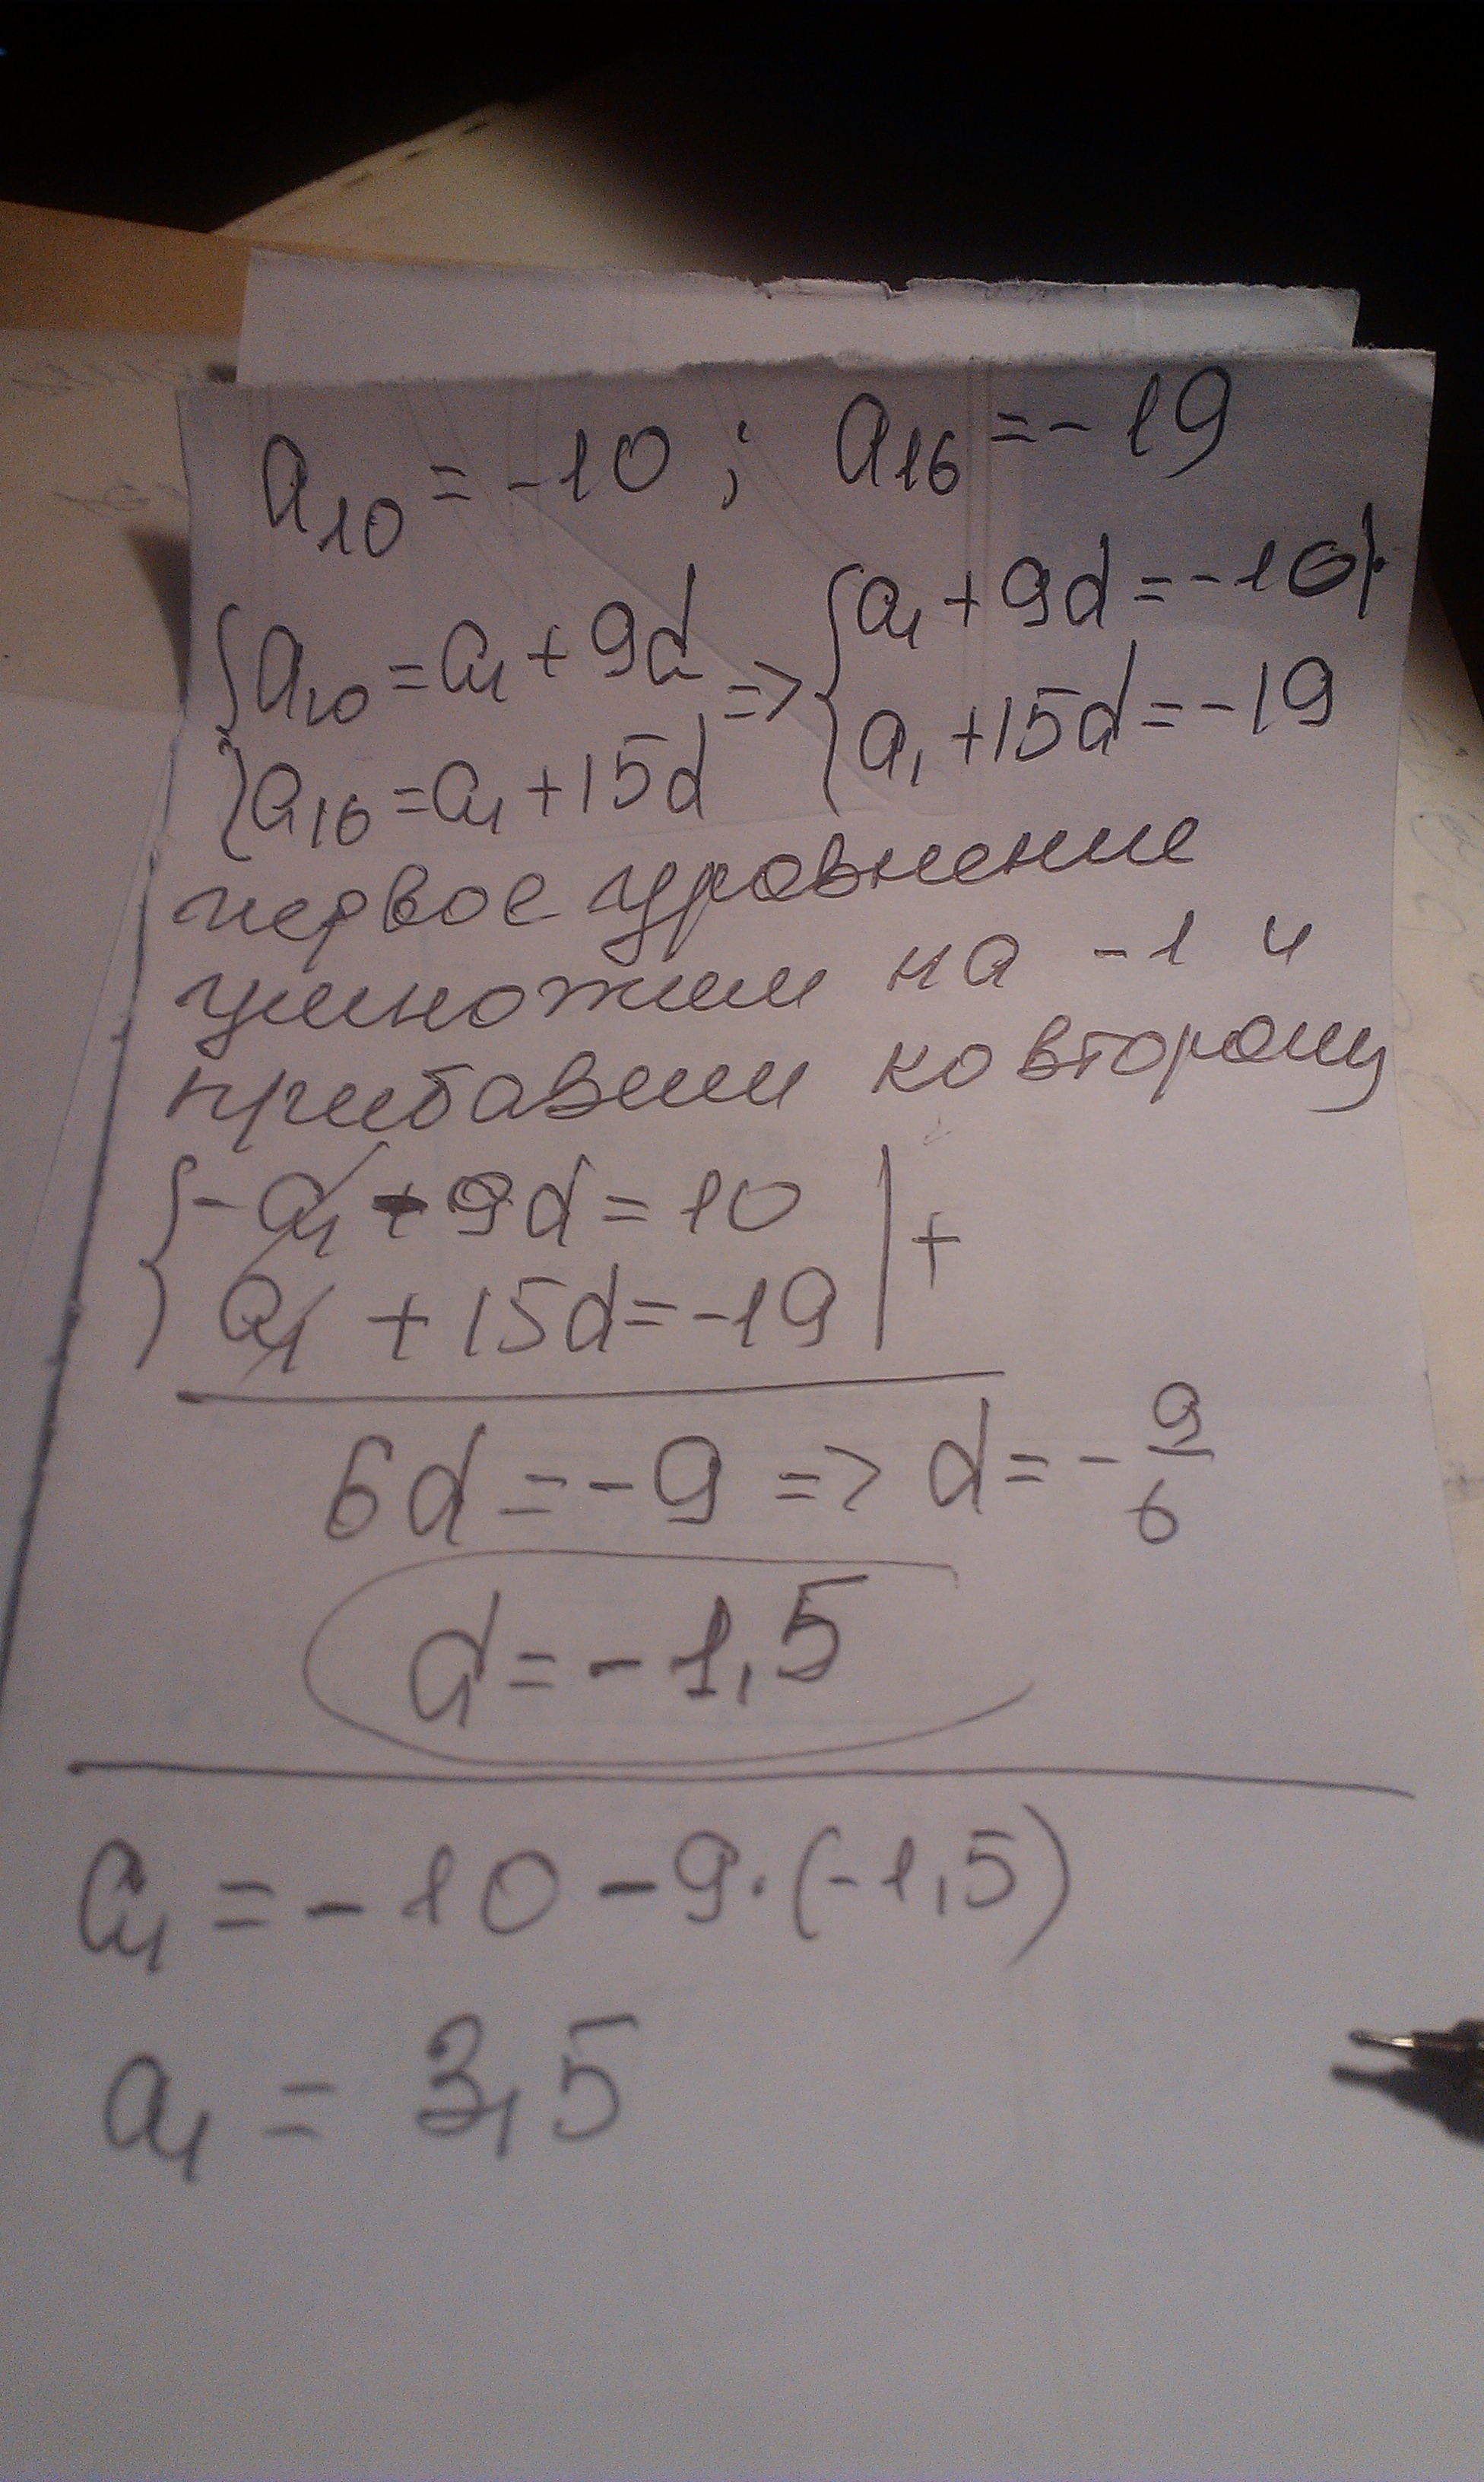 a₁₀ = -10 ; a₁₆ = -19
{a₁₀ = a₁ + 9d => {a₁ + 9d = -10
{a₁₆ = a₁ + 15d {a₁ + 15d = -19
первое уровнение
умножим на -1 и
прибавим ко второму
{-a₁ - 9d = 10 | +
a₁ + 15d = -19
6d = -9 => d = -9/6
d = -1,5
a₁ = -10 - 9·(-1,5)
a₁ = 3,5